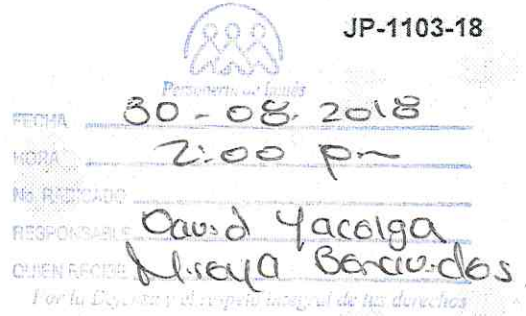 JP-1103-18
Personería de Ibagué
FECHA 30-08-2018
HORA 2:00 pm
No. RADICADO
RESPONSABLE David Yacelga
QUIEN RECIBE
Por la Defensa y el respeto integral de tus derechos